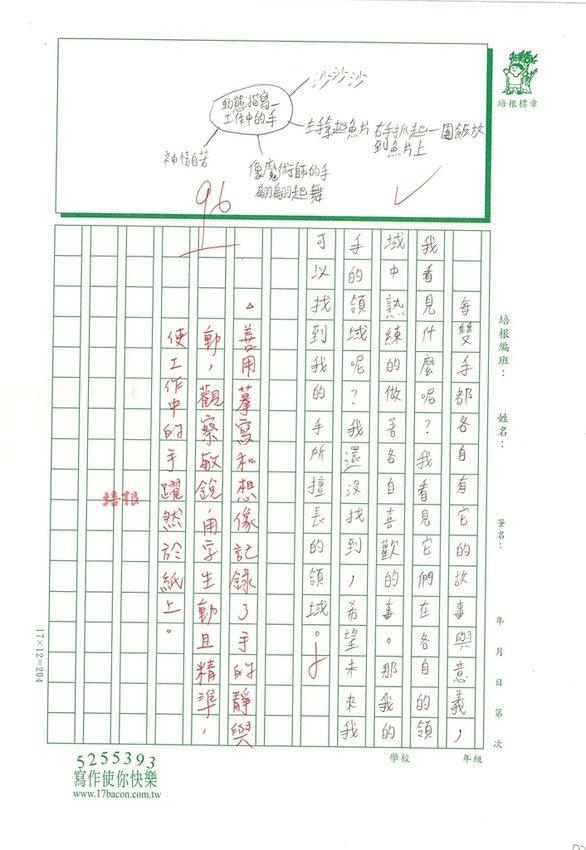 沙沙沙
動態描寫—
工作中的手
左手拿起魚片 右手抓起一團飯放
到魚片上
神情自若
像魔術師的手
翩翩起舞
96
培根標章
培根編班：
姓名：
筆名：
年 月 日 第 次
每雙手都各自有它的故事與意義，
我看見什麼呢？我看見它們在各自的領
域中熟練的做著各自喜歡的事。那我的
手的領域呢？我還沒找到，希望未來我
可以找到我的手所擅長的領域。
善用摹寫和想像記錄了手的靜與
動，觀察敏銳，用字生動且精準，
使工作中的手躍然於紙上。
培根
17×12=204
學校 年級
5255393
寫作使你快樂
www.17bacon.com.tw